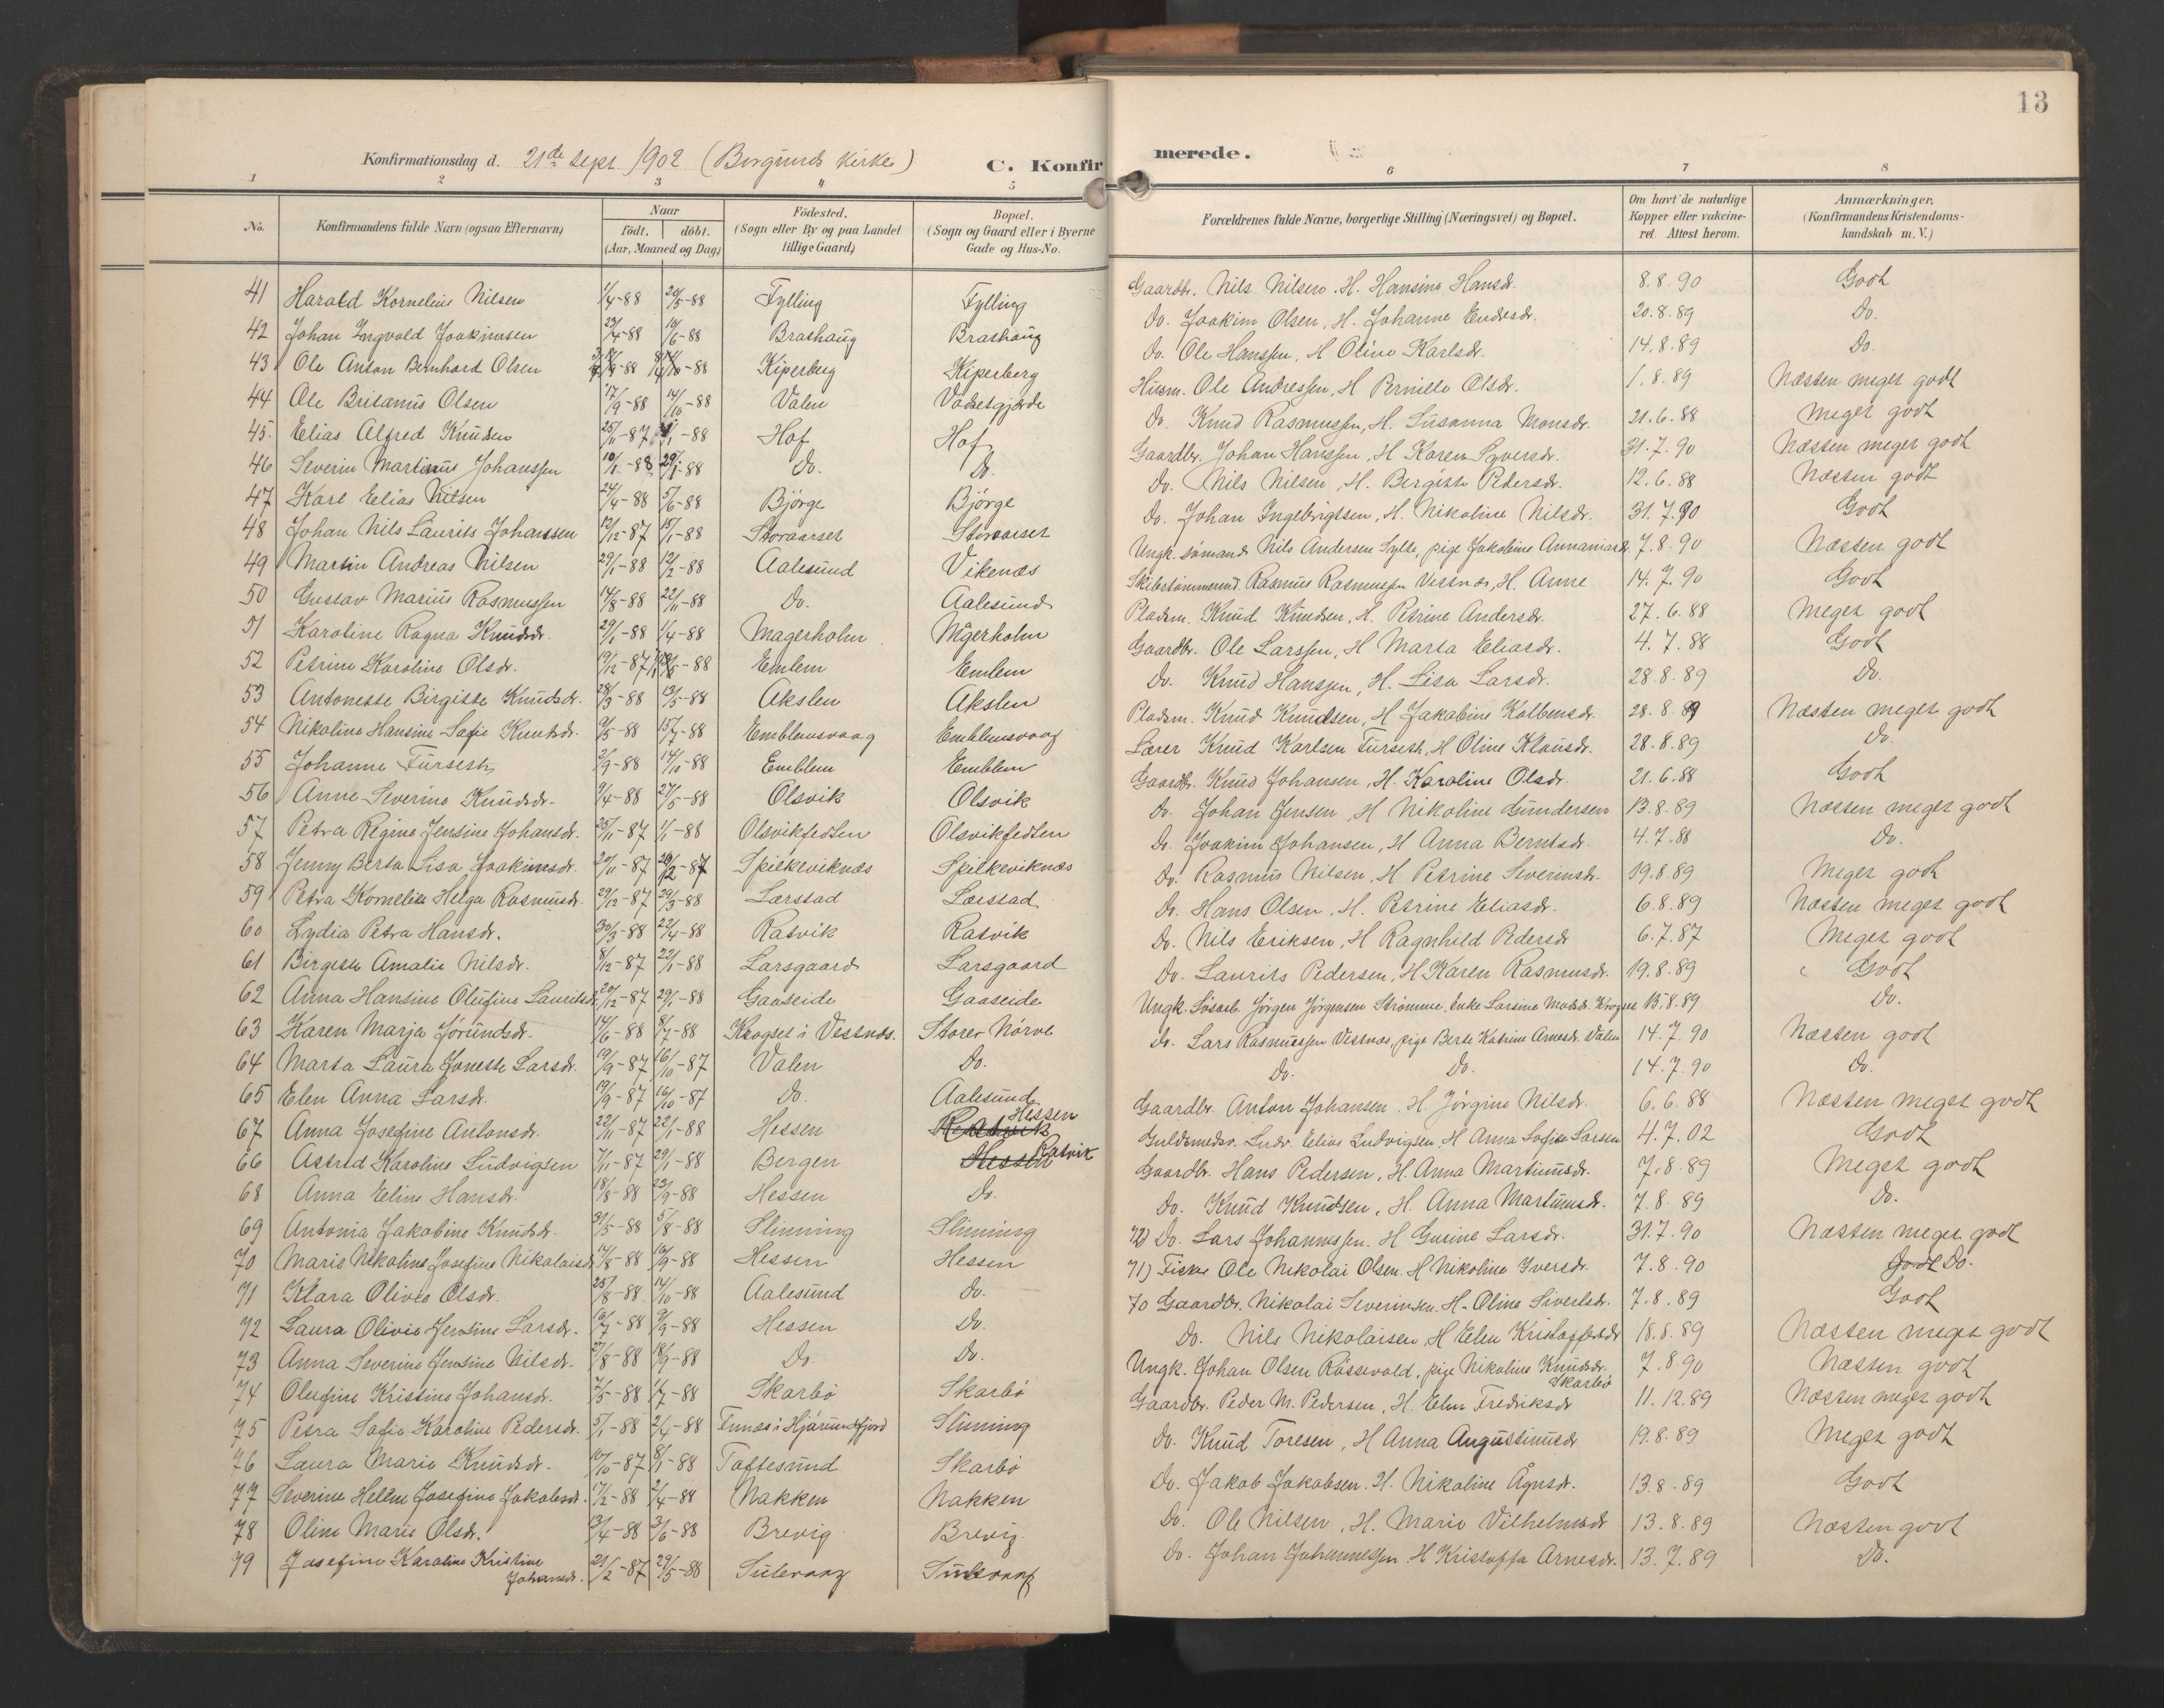 13
Konfirmationsdag d. 21de Sept 1902 (Borgund Kirke) C. Konfirmerede.
1 2 3 4 5 6 7 8
No. Konfirmandens fulde Navn (ogsaa Efternavn) Naar født. døbt. (Aar, Maaned og Dag) Fødested. (Sogn eller By og paa Landet tillige Gaard) Bopæl. (Sogn og Gaard eller i Byerne Gade og Hus-No. Forældrenes fulde Navne, borgerlige Stilling (Næringsvei) og Bopæl. Om havt de naturlige Kopper eller vakcineret. Attest herom. Anmærkninger. (Konfirmandens Kristendomskundskab m. V.)
41 Harald Kornelius Nilsen 1/4-88 20/5-88 Fylling Fylling Gaardbr. Nils Nilsen. H. Hansine Hansdr. 8.8.90 Godt
42 Johan Ingvald Joakimsen 23/4-88 10/6-88 Brashaug Brashaug Do. Joakim Olsen, H. Johanne Endresdr. 20.8.89 Do.
43 Ole Anton Bernhard Olsen Kiperberg Kiperberg Do. Ole Hanssen, H Oline Karlsdr. 14.8.89 Do.
44 Ole Britanus Olsen 17/9-88 14/10-88 Valen Vadsetgjærde Husm. Ole Andressen, H Pernille Olsdr. 1.8.89 Næsten meget godt
45. Elias Alfred Knudsen 25/11-87 1/1-88 Hof Hof Do. Knud Rasmussen, H. Susanna Monsdr. 21.6.88 Meget godt
46 Severin Martinus Johanssen 10/1-88 29/1-88 Do. Do. Gaardbr. Johan Hanssen, H Karen Syversdr. 31.7.90 Næsten meget godt
47 Karl Elias Nilsen 24/4-88 5/6-88 Bjørge Bjørge Do. Nils Nilsen, H. Bergitte Pedersdr. 12.6.88 Næsten godt
48 Johan Nils Laurits Johanssen 12/12-87 15/1-88 Storaaset Storaaset Do. Johan Ingebrigtsen, H. Nikoline Nilsdr. 31.7.90 Godt
49 Martin Andreas Nilsen 29/1-88 12/2-88 Aalesund Vikenæs Ungk. sømand Nils Andersen Sylte, pige Jakobine Annaniasdr. 7.8.90 Næsten godt
50 Gustav Marius Rasmussen 14/8-88 22/11-88 Do. Aalesund Skibstømmermd. Rasmus Rasmussen Vestnæs, H. Anne 14.7.90 Godt
51 Karoline Ragna Knudsdr. 29/1-88 1/4-88 Magerholm Magerholm Pladsm. Knud Knudsen, H. Petrine Andersdr. 27.6.88 Meget godt
52 Petrine Karoline Olsdr. 19/12-87 Emlem Emlem Gaardbr. Ole Larssen, H Marta Eliasdr. 4.7.88 Godt
53 Antonette Birgitte Knudsdr. 28/3-88 13/5-88 Akslen Akslen Do. Knud Hanssen, H. Lisa Larsdr. 28.8.89 Do.
54 Nikoline Hansine Sofie Knutsdr. 9/5-88 15/7-88 Emblemsvaag Emblemsvaag Pladsm. Knud Knudsen, H Jakobine Kolbensdr. 28.8.89 Næsten meget godt
55 Johanne Furseth 2/9-88 14/10-88 Emblem Emblem Lærer Knud Karlsen Furseth, H Oline Klausdr. 28.8.89 Do.
56 Anne Severine Knudsdr. 9/4-88 27/5-88 Olsvik Olsvik Gaardbr. Knud Johansen, H. Karoline Olsdr. 21.6.88 Godt
57 Petra Regine Jensine Johansdr. 25/11-87 1/1-88 Olsvikfedten Olsvikfedten Do. Johan Jensen, H Nikoline Gundersen 13.8.89 Næsten meget godt
58 Jenny Berta Lisa Joakimsdr. 20/11-87 26/12-87 Spilkeviknæs Spilkeviknæs Do. Joakim Johansen, H Anna Berntsdr. 4.7.88 Do.
59 Petra Kornelie Helga Rasmusdr. 29/12-87 29/3-88 Lærstad Lærstad Do. Rasmus Nilsen, H Petrine Severinsdr. 19.8.89 Meget godt
60 Lydia Petra Hansdr. 30/3-88 22/4-88 Ratvik Ratvik Do. Hans Olsen, H. Petrine Eliasdr. 6.8.89 Næsten meget godt
61 Birgitte Amalie Nilsdr. 8/12-87 22/1-88 Larsgaard Larsgaard Do. Nils Eriksen, H Ragnhild Pedersdr 6.7.87 Meget godt
62 Anna Hansine Olufine Lauritsdr. 20/12-87 29/1-88 Gaaseide Gaaseide Do. Laurits Pedersen, H Karen Rasmusdr. 19.8.89 Godt
63 Karen Marja Jørundsdr. 14/6-88 8/7-88 Krogset i Vestnæs. Store Nørve Ungk. Jørgen Jørgensen Strømme, Enke Larsine Madsdr. Krogset 15.8.89 Do.
64 Marta Laura Jonette Larsdr. 19/9-87 16/10-87 Valen Do. Do. Lars Rasmussen Vestnæs, pige Berte Katrine Arnesdr. Valen 14.7.90 Næsten godt
65 Elen Anna Larsdr. 19/9-87 16/10-87 Do. Aalesund Do. Do. 14.7.90 Do.
67 Anna Josefine Antonsdr. 22/11-87 22/1-88 Hessen Ratvik Hessen Gaardbr. Anton Johansen. H. Jørgine Nilsdr. 6.6.88 Næsten meget godt
66 Astrid Karoline Ludvigsen 7/11-87 29/1-88 Bergen Hessen Ratvik Guldsmedsv. Ludv. Elias Ludvigsen, H Anna Sofie Larsen 4.7.02 Godt
68 Anna Eline Hansdr. 18/8-88 23/9-88 Hessen Do. Gaardbr. Hans Pedersen, H. Anna Martinusdr. 7.8.89 Meget godt
69 Antonia Jakobine Knudsdr. 31/5-88 5/8-88 Slinning Slinning Do. Knud Knudsen, H. Anna Martinusdr. 7.8.89 Do.
70 Marie Nikoline Josefine Nikolaisdr 14/8-88 16/9-88 Hessen Hessen 72) Do. Lars Johannessen. H Gurine Larsdr. 31.7.90 Næsten meget godt
71 Klara Olivia Olsdr. 25/8-88 14/10-88 Aalesund Do. 71) Fisker Ole Nikolai Olsen. H Nikoline Iversdr. 7.8.90 Godt Do.
72 Laura Olivie Jensine Larsdr. 16/7-88 9/9-88 Hessen Do. 70 Gaardbr. Nikolai Severinsen. H. Oline Sivertsdr. 7.8.89 Godt
73 Anna Severine Jensine Nilsdr. 27/8-88 18/9-88 Do. Do. Do. Nils Nikolaisen, H Elen Kristoffersdr 18.8.89 Næsten meget godt
74 Olufine Kristine Johansdr. 7/5-88 1/7-88 Skarbø Skarbø Ungk. Johan Olsen Røssevold, pige Nikoline Knudsdr. Skarbø 7.8.90 Næsten godt
75 Petra Sofie Karoline Pedersdr. 5/1-88 2/4-88 i Hjørundfjord Slinning Gaardbr. Peder M. Pedersen, H. Elen Fredriksdr 11.12.89 Næsten meget godt
76 Laura Marie Knudsdr. 10/10-87 8/1-88 Toftesund Skarbø Do. Knud Toresen, H Anna Augustinusdr 19.8.89 Meget godt
77 Severine Helene Josefine Jakobsdr. 17/2-88 2/4-88 Nakken Nakken Do. Jakob Jakobsen. H. Nikoline Agnsdr. 13.8.89 Godt
78 Oline Marie Olsdr. 13/4-88 3/6-88 Brevig Brevig Do. Ole Nilsen, H. Marie Vilhelmsdr 13.8.89 Næsten godt
79 Josefine Karoline Kristine Johansdr. 21/2-87 29/5-88 Sulevaag Sulevaag Do. Johan Johannessen. H Kristoffa Arnesdr. 13.7.89 Do.